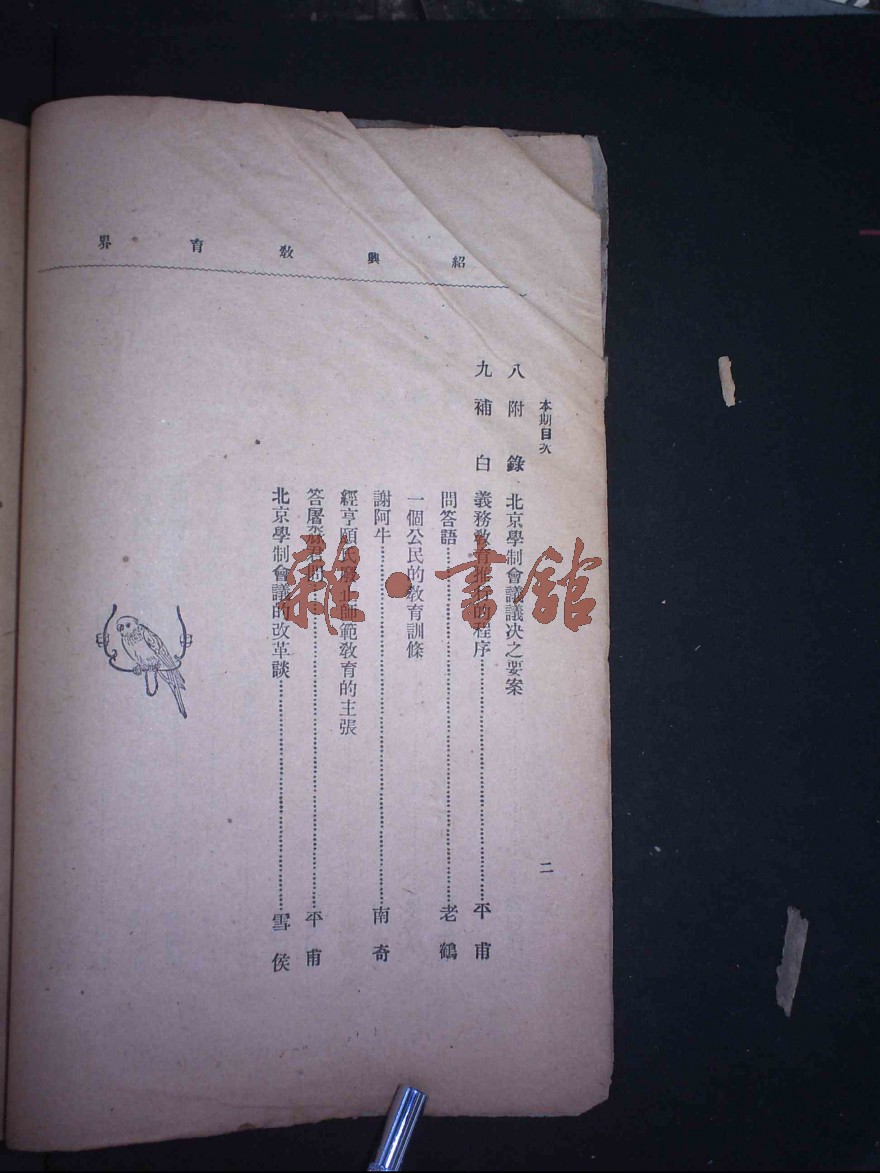 紹興教育界
本期目次
二
八 附錄 北京學制會議議决之要案
九 補白 義務教育推行的程序 平甫
問答語 老鶴
一個公民的教育訓條
謝阿牛 南奇
經亨頤氏 師範教育的主張
答屠 君 平甫
北京學制會議的改革談 雪侯
雜·書館